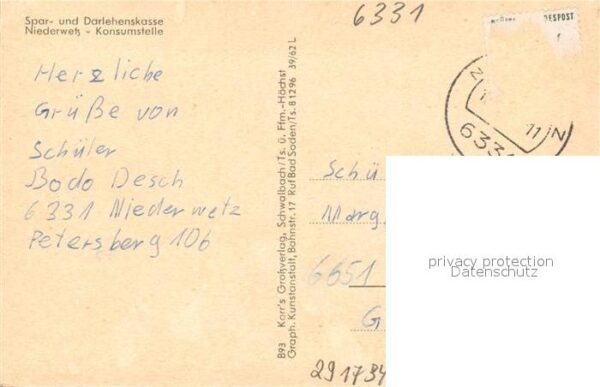 Spar- und Darlehenskasse
Niederwetz - Konsumstelle
6331
Herzliche
Grüße von
Schüler
Bodo Desch
6331 Niederwetz
Petersberg 106
893 Korr's Großverlag, Schwalbach/Ts. ü. Ffm.-Höchst
Graph. Kunstanstalt, Bahnstr. 17 Ruf Bad Soden/Ts. 81296 39/62 L
DESPOST
6331
Schü
Marg
6651
G
291734
privacy protection
Datenschutz